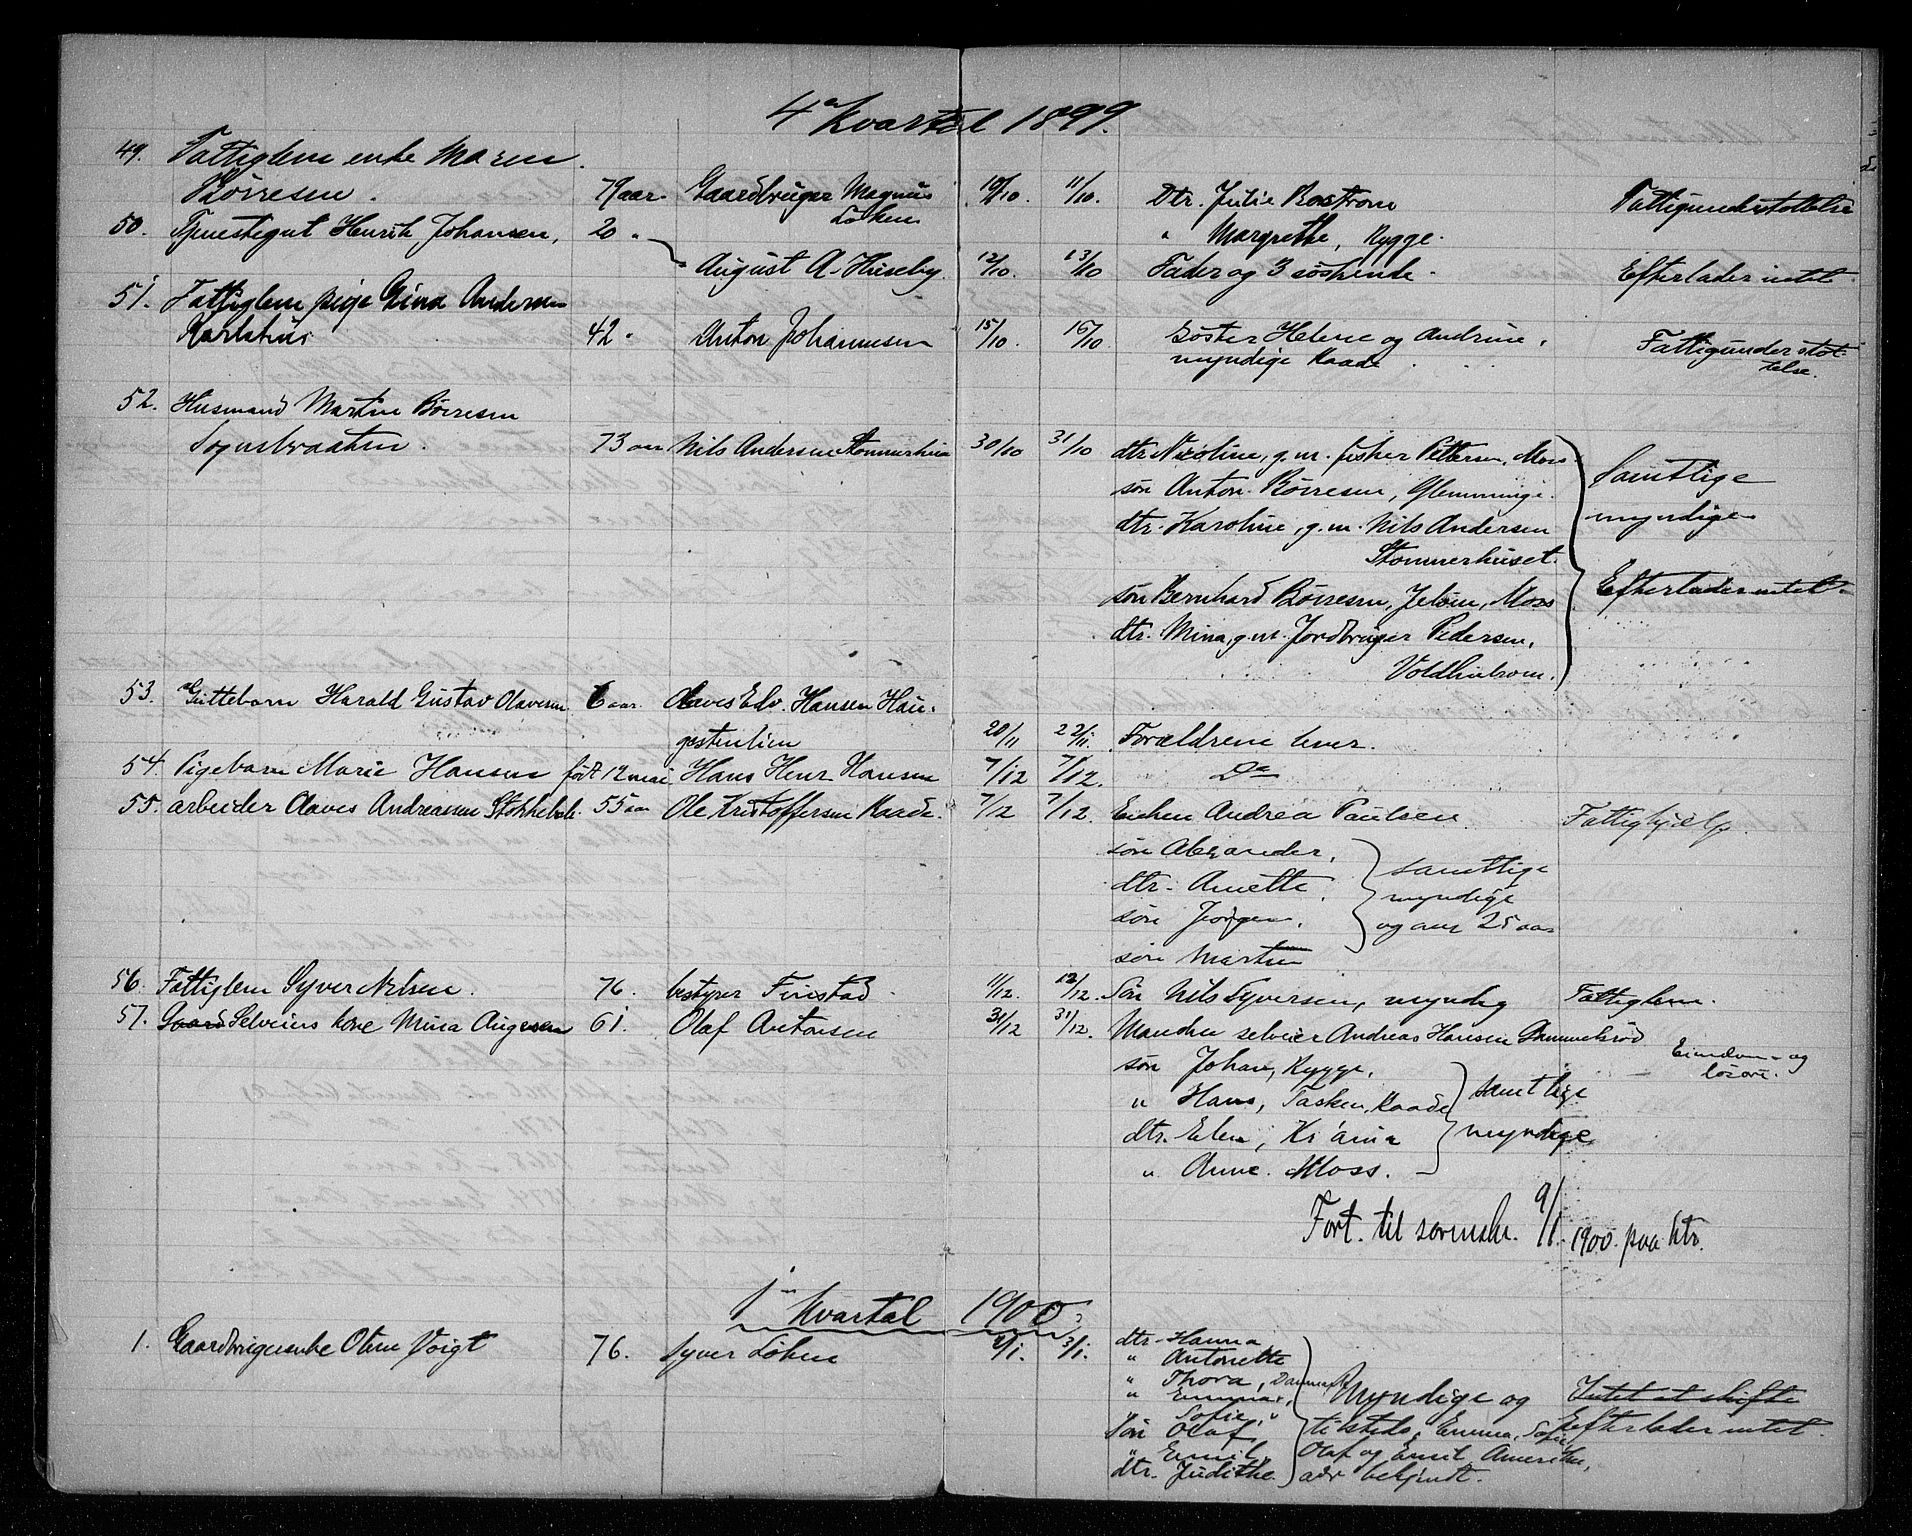 4de Kvartal 1899.
49. Fattiglem enke Maren
Börresen. 79 aar. Gaardbruger Magnus 10/10. 11/10. Dtr. Julie Rostrom Fattigunderstöttelse
Löken
50. Tjenestegut Henrik Johansen, 20 " " Margrethe, Rygge.
August A. Huseby. 12/10. 13/10 Fader og 3 söskende. Efterlader intet.
51. Fattiglem pige Gina Andersen
Karlshus 42 " Anton Johannesen 15/10. 16/10 Söster Helene og Andrine, Fattigunderstöt-
myndige Raade telse.
52. Husmand Martin Börresen
Sognsbraaten. 73 aar Nils Andersen Stommerhuset 30/10 31/10 dtr. Nicoline, g.m. fisker Pettersen, Moss Samtlige
sön Anton Börresen, Glemminge. myndige
dtr. Karoline, g.m. Nils Andersen
Stommerhuset.
sön Bernhard Börresen, Jelöen, Moss Efterlader intet.
dtr. Mina, g.m. Jordbruger Pedersen,
53. Guttebarn Harald Gustav Olavesen 6 aar. Olaves Edv. Hansen Hau-
gestenlien 20/11 22/11. Forældrene lever.
54. Pigebarn Marie Hansen föd 12 mai Hans Henr Hansen 7/12 7/12. Do
55. arbeider Olaves Andreassen Stokkebæk. 55 aar Ole Kristoffersen Raade. 7/12 7/12. Enken Andrea Paulsen. Fattighjælp.
sön Alexander, samtlige
dtr. Anette. myndige
sön Jörgen, og over 25 aar
sön Martin
56. Fattiglem Syver Nilsen. 76. bestyrer Finstad 11/12. 12/12. Sön Nils Syversen, myndig Fattiglem.
57. Gaard Selveiers kone Mina Augesen 61. Olaf Antonsen 31/12 31/12. Manden selveier Andreas Hansen Gammelsröd
Eiendom og
lösöre.
sön Johan, Rygge,
" Hans, Tasken, Raade samtlige
dtr. Elen, Kr.ania myndige
" Anne. Moss.
Fort. til sorenskr. 9/1. 1900. paa ktr.
1ste Kvartal 1900.
1. Gaardbrugerenke Oline Voigt 76. Syver Löken 2/1. 3/1. dtr. Hanna
" Antonette
" Thora, Danmark
" Emma, Myndige og Intet at skifte
" Sofie, "
Sön Olaf tilsteds, Emma, Sofie Efterlader intet.
" Emil, Olaf og Emil Amerika,
dtr. Judithe adr bekjendt.